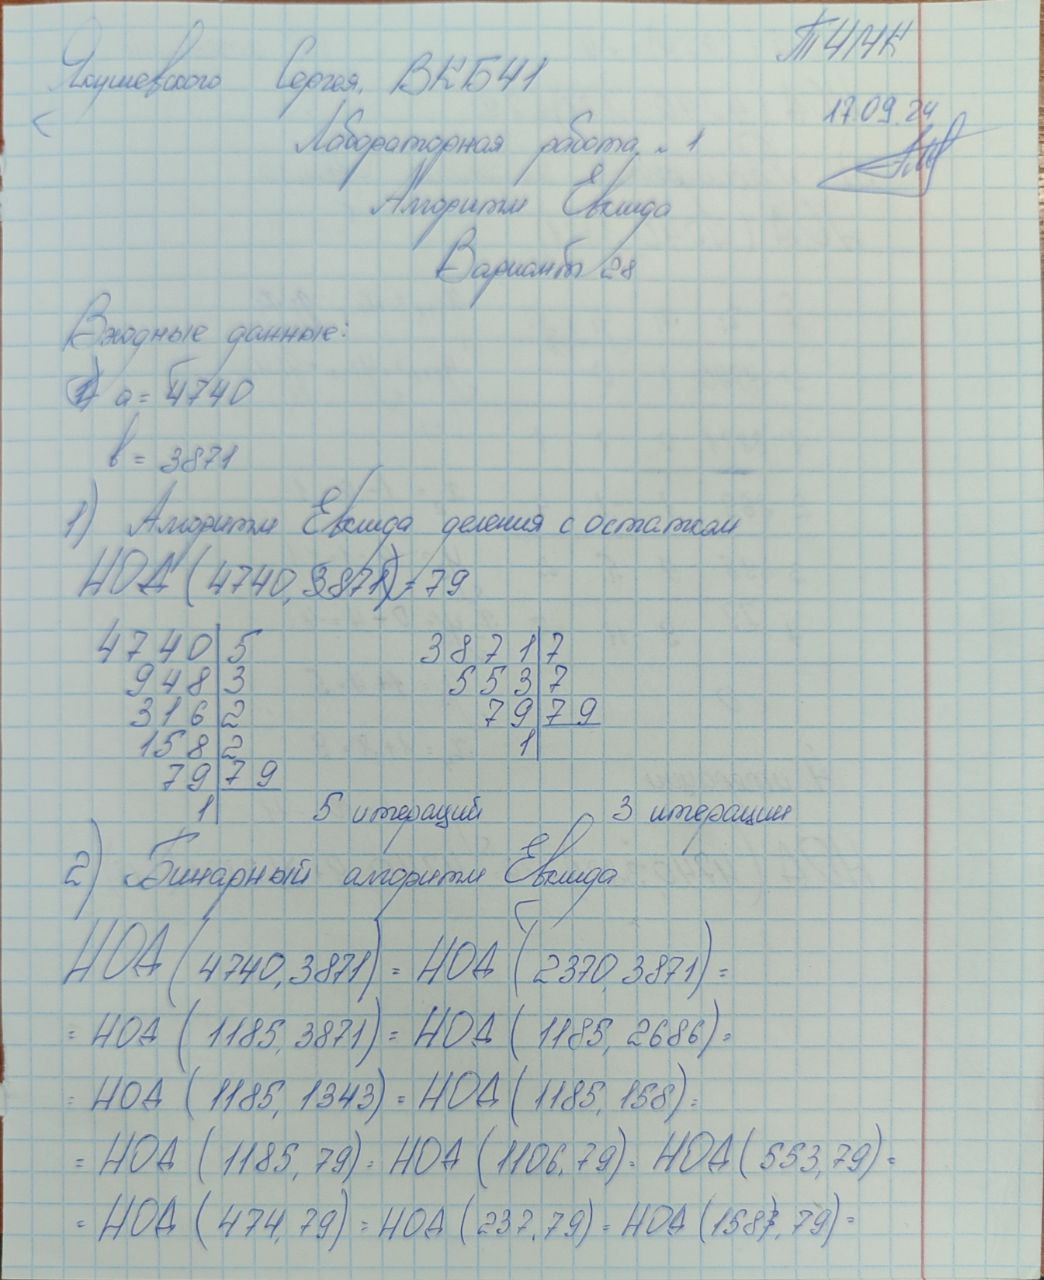 ТЧМК
Якушевского Сергея, ВКБ41
17.09.24
Лабораторная работа №1
Алгоритм Евклида
Вариант 28
Входные данные:
a = 4740
b = 3871
1) Алгоритм Евклида деления с остатком
НОД (4740, 3871) = 79
4740 | 5 3871 | 7
948 | 3 553 | 7
316 | 2 79 | 79
158 | 2 1 |
79 | 79
1 | 5 итераций 3 итерации
2) Бинарный алгоритм Евклида
НОД (4740, 3871) = НОД (2370, 3871) =
= НОД (1185, 3871) = НОД (1185, 2686) =
= НОД (1185, 1343) = НОД (1185, 158) =
= НОД (1185, 79) = НОД (1106, 79) = НОД (553, 79) =
= НОД (474, 79) = НОД (237, 79) = НОД (158, 79) =